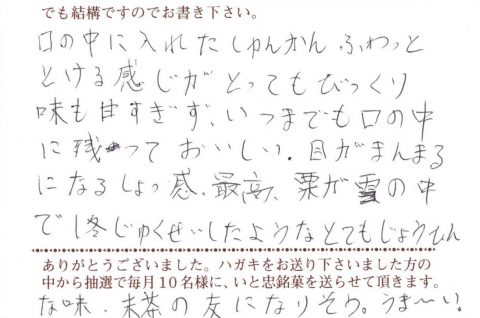 でも結構ですのでお書き下さい。
口の中に入れたしゅんかん ふわっと
とける感じがとってもびっくり
味も甘すぎず、いつまでも口の中
に残っておいしい。目がまんまる
になるしょっ感、最高、栗が雪の中
で冬じゅくせいしたようなとてもじょうひん
ありがとうございました。ハガキをお送り下さいました方の
中から抽選で毎月10名様に、いと忠銘菓を送らせて頂きます。
な味、抹茶の友になりそう。うま〜い!